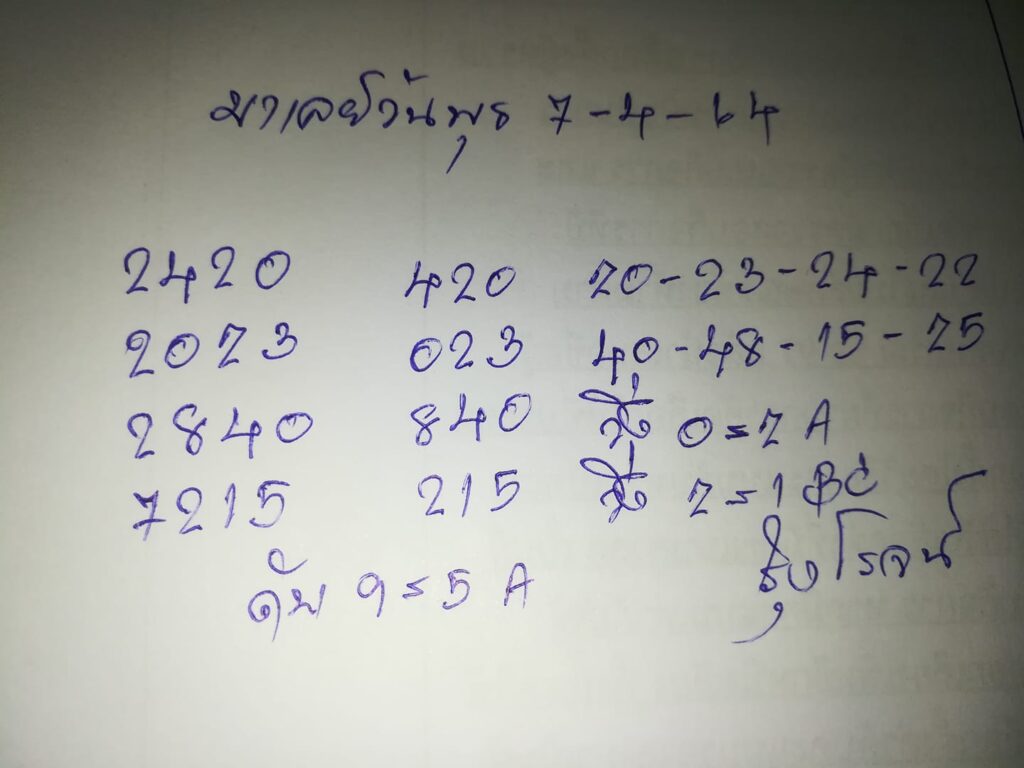 มาเลย์วันพุธ 7-4-64
2420 420 20-23-24-22
2023 023 40-48-15-25
2840 840 0=2 A
7215 215 2=1 BC
ดับ 9=5 A รุ่งโรจน์